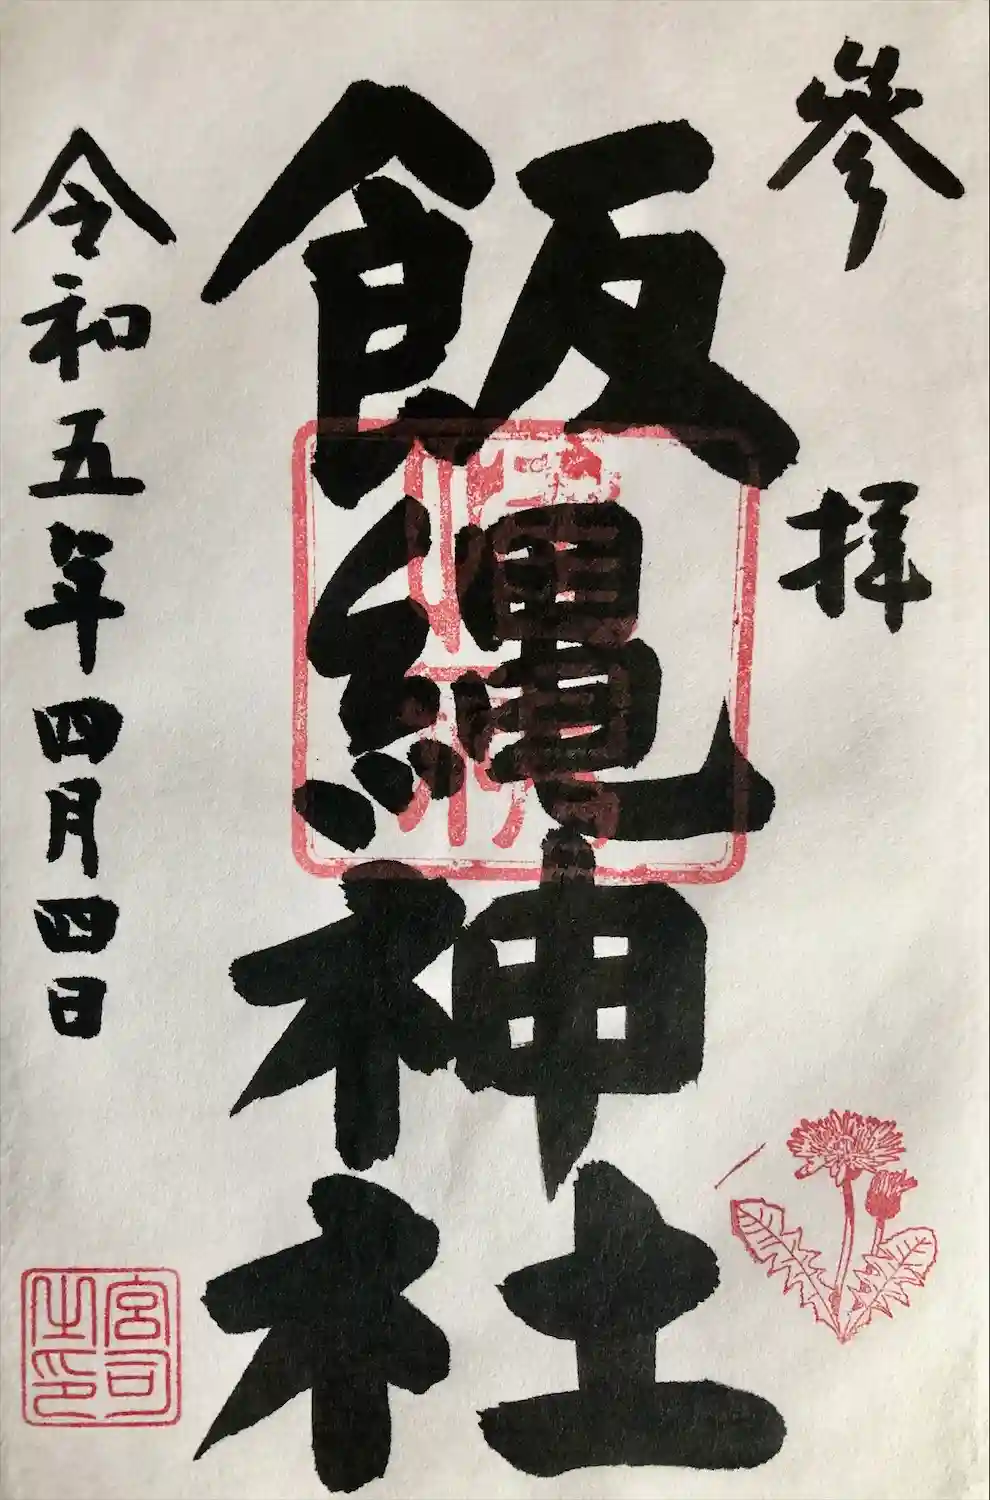 参拝
飯縄神社
令和五年四月四日
宮司
之印